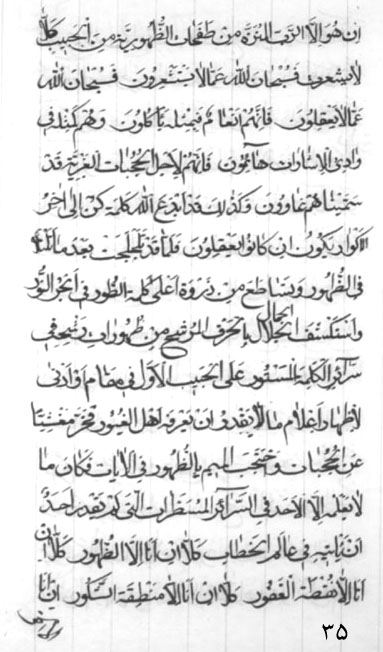 ان هو الا الرب المنزه من طفحات الظهور برية من الحبيب كلا
لا يشعرون فسبحان الله عما لا يشعرون فسبحان الله
عما لا يعقلون فانهم انعام فيجبله ياكلون وهم كذلك في
وادي الاشارات هائمون فانهم لاجل الحجبات الغربية قد
سميناهم عاوون وكذلك قد ابدع الله كلمة كن الى اخر
الاكوار يكون ان كانوا يعقلون فلما قد تجلجت بعد ما
في الظهور وتساطع من ذروة اعلى كلمة الطور في ابحر النور
واستكشف الجلال الجمال بالحرف المرشح من ظهورات رشح في
سرائر الكلمة المستور على الحبيب الاول في مقام او ادنى
لاظهار اعلام ما لا يقد وان نعرفه اهل العيور فخر مغشيا
عن الحجبات وحتجب الميم بالظهور في الايات فكان ما
لا يعلمه الا الاحد في السرائر المستطرات التي لم تقدير احد
ان ياتيه في عالم الخطاب كلا ان انا الا الظهور كلا ان
انا الا نقطة الغفور كلا ان انا الا منطقة السلور ان انا
۳۵